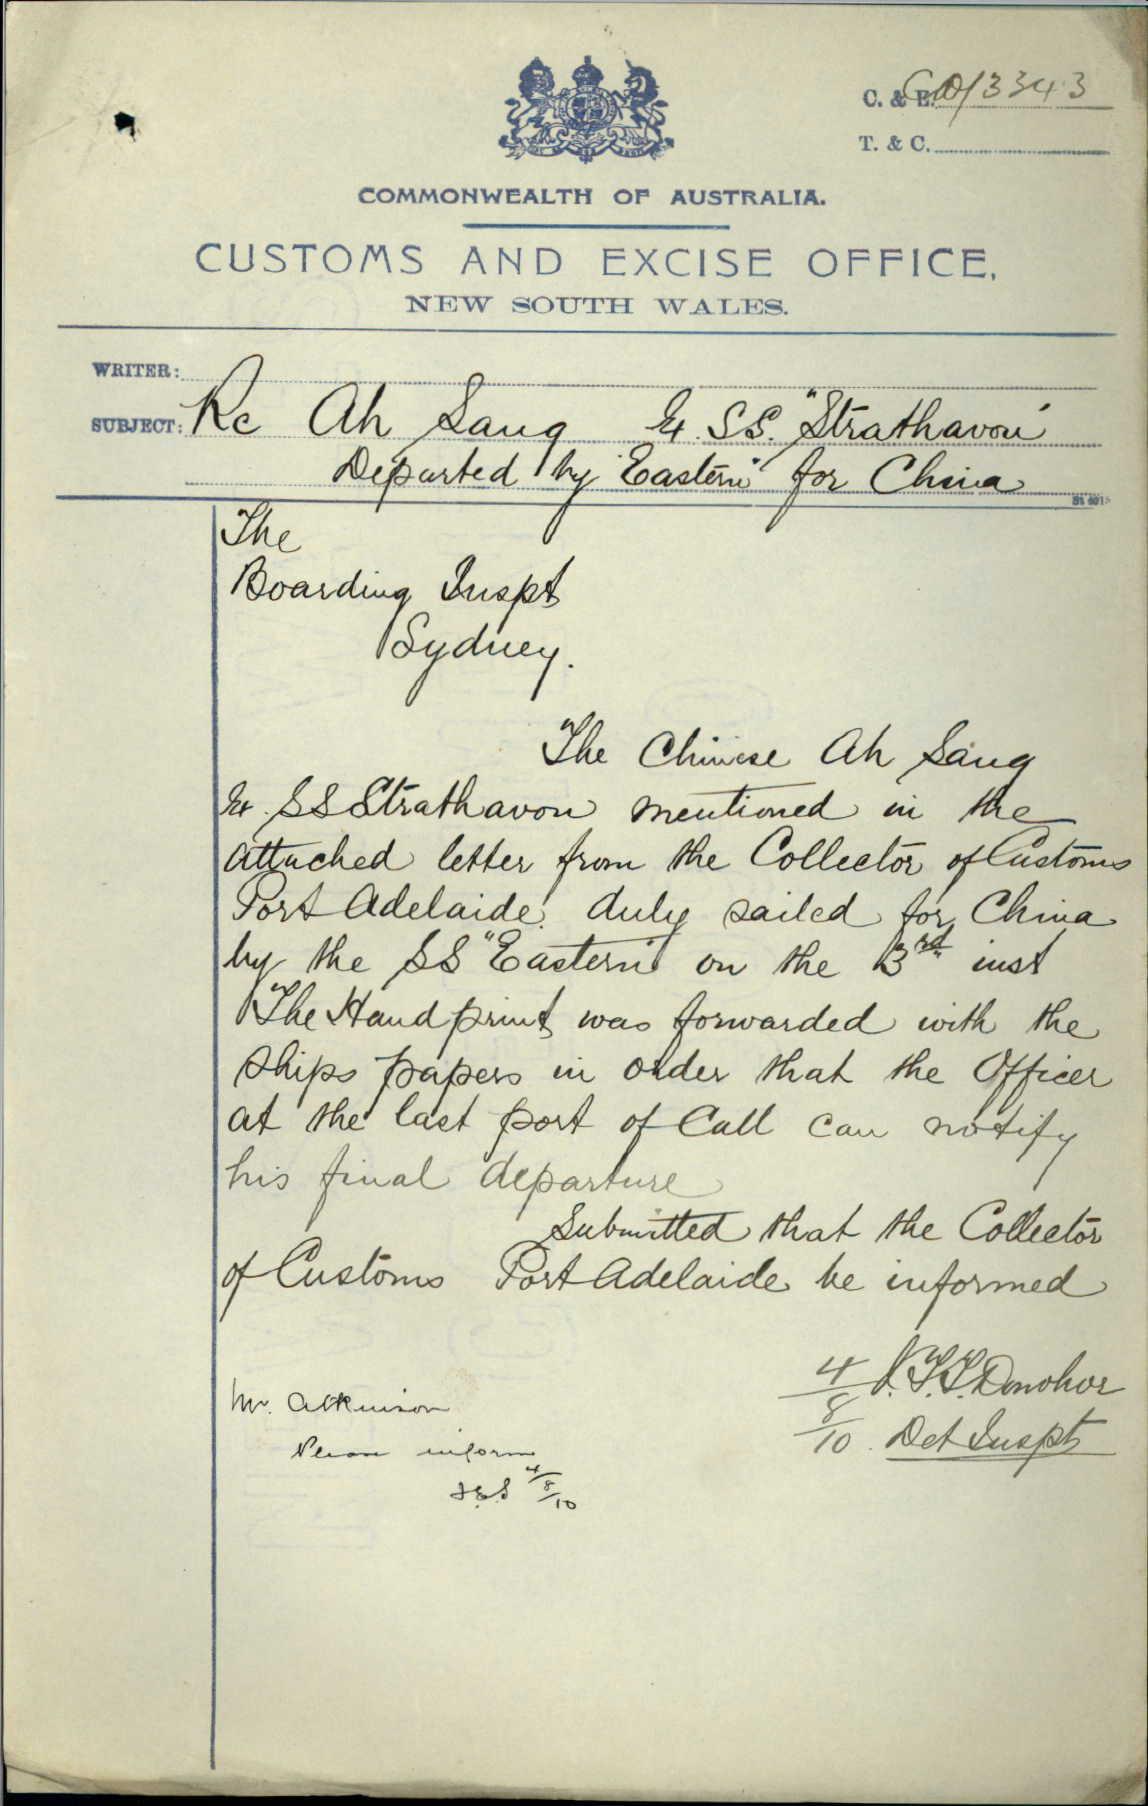 C. & E. 10/3343
T. & C.
COMMONWEALTH OF AUSTRALIA.
CUSTOMS AND EXCISE OFFICE,
NEW SOUTH WALES.
WRITER:
SUBJECT: Re Ah Sang Ex. S.S. "Strathavon"
Departed by "Eastern" for China
The
Boarding Inspt
Sydney.
The Chinese Ah Sang
Ex. SS Strathavon mentioned in the
attached letter from the Collector of Customs
Port Adelaide duly sailed for China
by the SS "Eastern" on the 3rd inst
The Hand print was forwarded with the
Ships papers in order that the Officer
at the last port of Call can notify
his final departure
Submitted that the Collector
of Customs Port Adelaide be informed
4/8/10 J.T.T. Donohoe
Det Inspt
Mr. Atkinson
Please inform
4/8/10